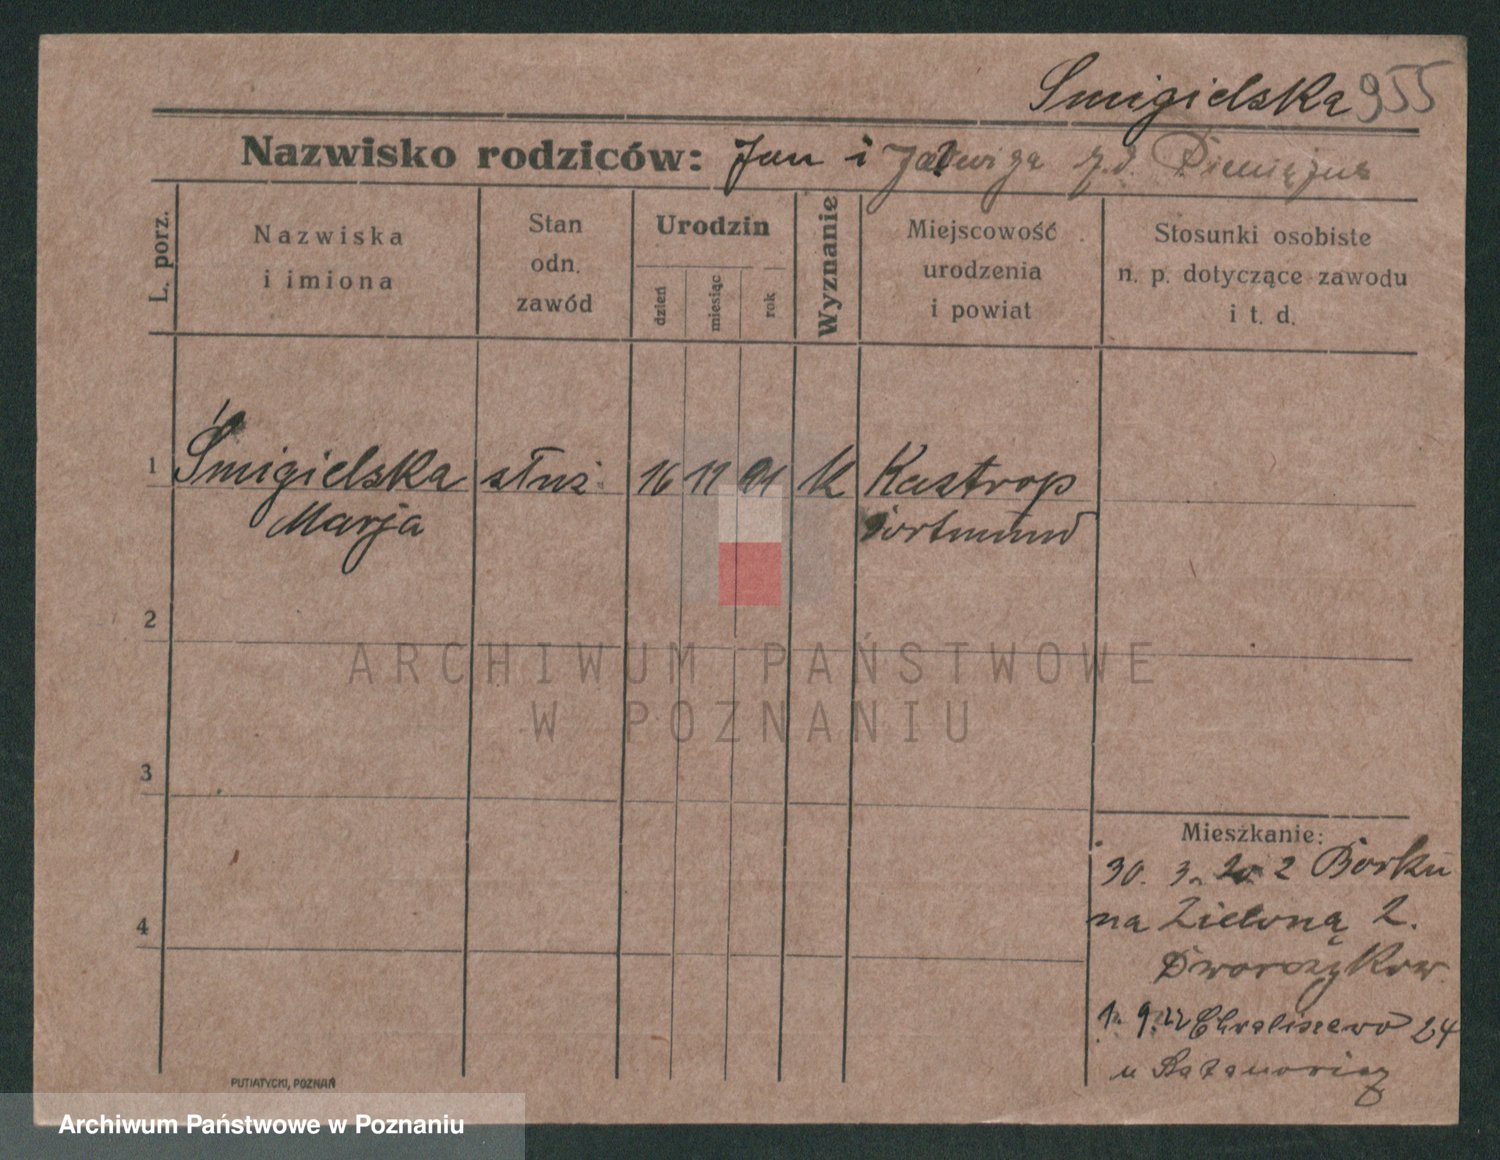 Smigielska 955
Nazwisko rodziców: Jan i Jadwiga z.d. Pieniężna
L. porz.
Nazwiska
i imiona
Stan
odn.
zawód
Urodzin
dzień
miesiąc
rok
Wyznanie
Miejscowość
urodzenia
i powiat
Stosunki osobiste
n. p. dotyczące zawodu
i t. d.
1 Śmigielska służ. 16 11 01 k Kastrop
Marja Dortmund
2
ARCHIWUM PAŃSTWOWE
W POZNANIU
3
4
Mieszkanie:
30. 3. 20 z Borku
na Zieloną 2.
1. 9. 22 Chwaliszewo 24
u
PUTIATYCKI, POZNAŃ
Archiwum Państwowe w Poznaniu